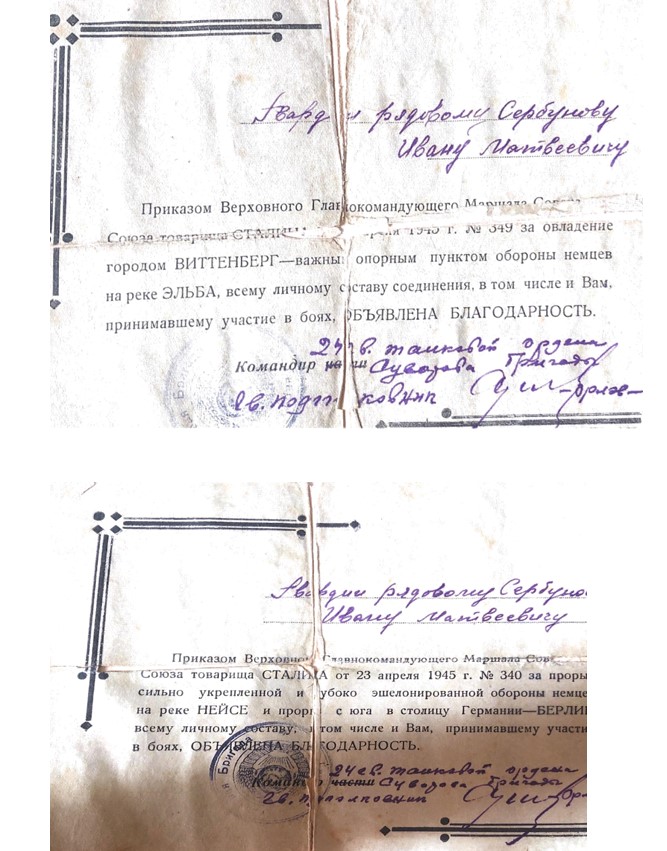 Гвардии рядовому Сербунову
Ивану Матвеевичу
Приказом Верховного Главнокомандующего Маршала Совет
Союза товарища СТАЛИНА 1945 г. № 349 за овладение
городом ВИТТЕНБЕРГ—важным опорным пунктом обороны немцев
на реке ЭЛЬБА, всему личному составу соединения, в том числе и Вам,
принимавшему участие в боях, ОБЪЯВЛЕНА БЛАГОДАРНОСТЬ.
24 гв. танковой ордена
Командир части Суворова бригады
Гв. подполковник
Гвардии рядовому Сербуно
Ивану Матвеевичу
Приказом Верховного Главнокомандующего Маршала Сов
Союза товарища СТАЛИНА от 23 апреля 1945 г. № 340 за проры
сильно укрепленной и глубоко эшелонированной обороны немце
на реке НЕЙСЕ и прорыв с юга в столицу Германии—БЕРЛИ
всему личному составу, в том числе и Вам, принимавшему участи
в боях, ОБЪЯВЛЕНА БЛАГОДАРНОСТЬ.
24 гв. танковой ордена
Командир части Суворова бригады
Гв. подполковник